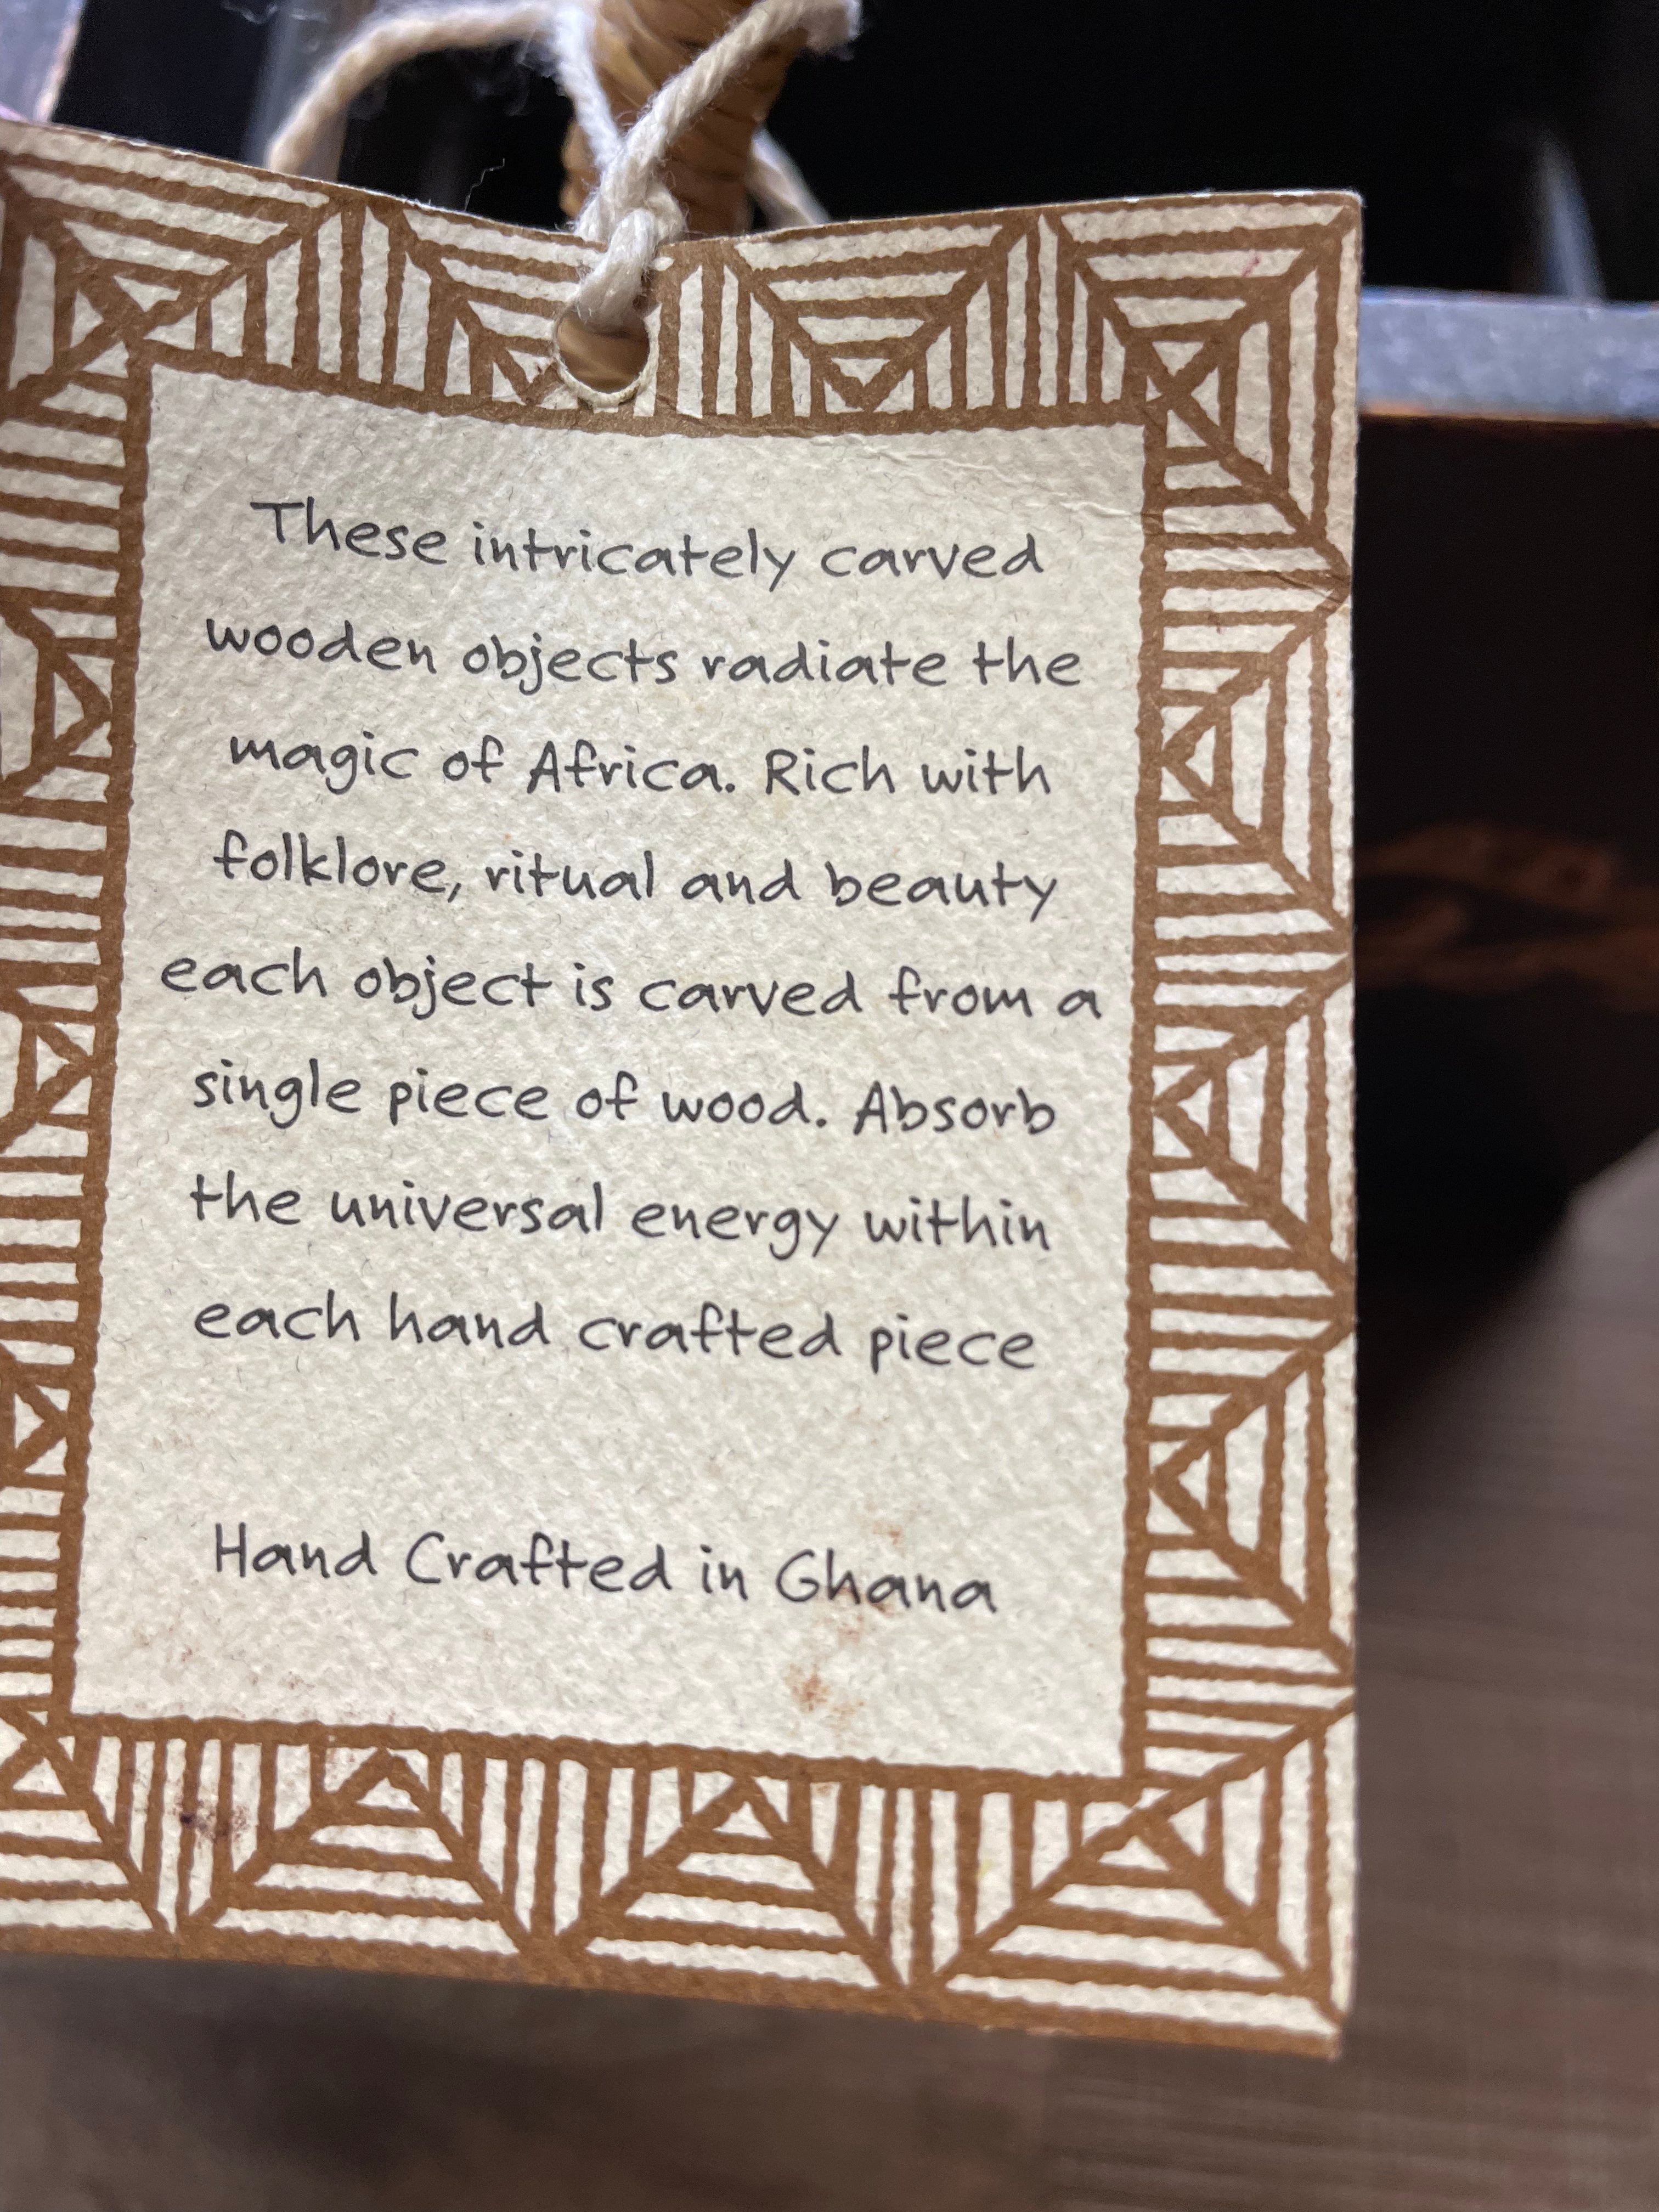 These intricately carved
wooden objects radiate the
magic of Africa. Rich with
folklore, ritual and beauty
each object is carved from a
single piece of wood. Absorb
the universal energy within
each hand crafted piece
Hand Crafted in Ghana